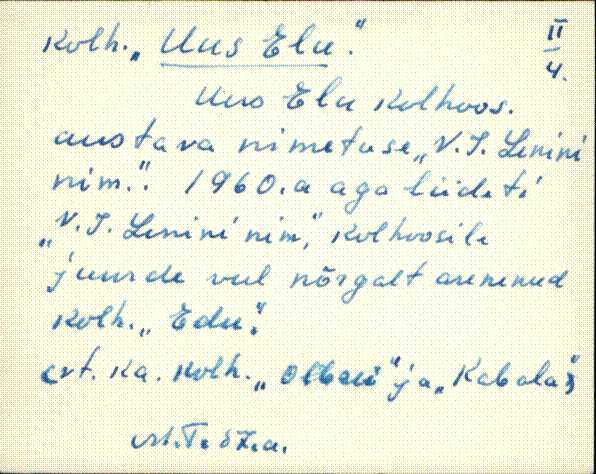 Kolh. „Uus Elu".
II
4.
Uus Elu kolhoos.
austava nimetuse „V. I. Lenini
nim.". 1960.a aga liideti
„V. I. Lenini nim," kolhoosile
juurde veel nõrgalt arenenud
kolh. „Edu".
(vt. ka. kolh. „ " ja „Kabala")